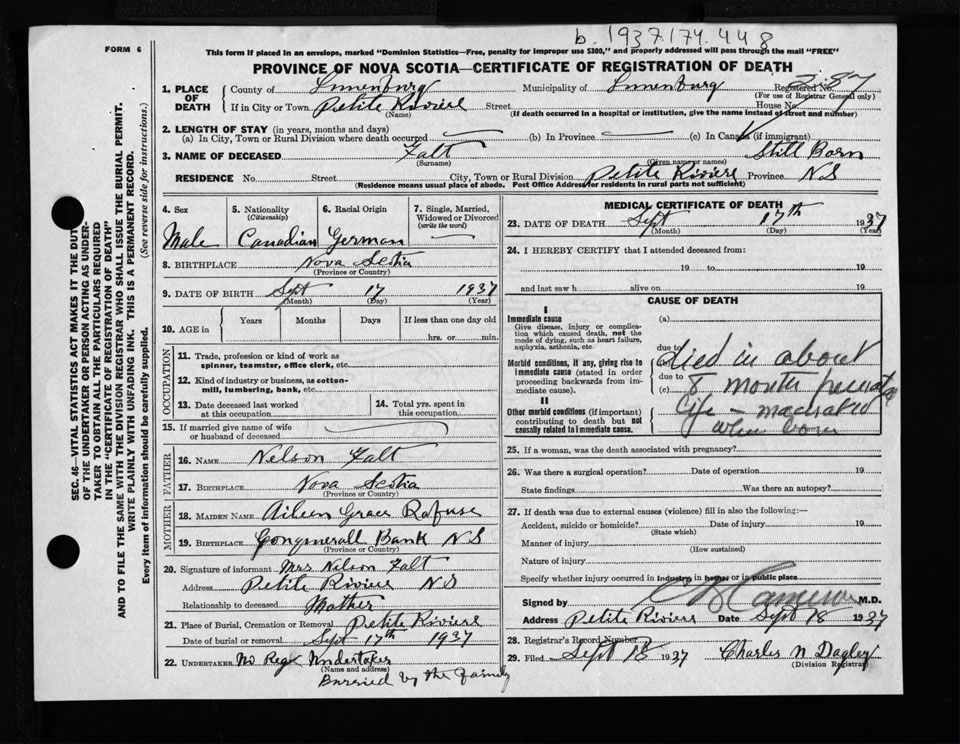 b. 1937.174.448
FORM 6
This form if placed in an envelope, marked "Dominion Statistics—Free, penalty for improper use $300," and properly addressed will pass through the mail "FREE"
PROVINCE OF NOVA SCOTIA—CERTIFICATE OF REGISTRATION OF DEATH
1. PLACE OF DEATH County of Lunenburg Municipality of Lunenburg Registered No.
(For use of Registrar General only)
If in City or Town Petite Riviere Street House No.
(Name) (If death occurred in a hospital or institution, give the name instead of street and number)
2. LENGTH OF STAY (in years, months and days)
(a) In City, Town or Rural Division where death occurred (b) In Province (c) In Canada (if immigrant)
3. NAME OF DECEASED Falt Still Born
(Surname) (Given name or names)
RESIDENCE No. Street City, Town or Rural Division Petite Riviere Province N S
(Residence means usual place of abode. Post Office Address for residents in rural parts not sufficient)
4. Sex 5. Nationality (Citizenship) 6. Racial Origin 7. Single, Married, Widowed or Divorced (write the word)
Male Canadian German
8. BIRTHPLACE Nova Scotia
(Province or Country)
9. DATE OF BIRTH Sept 17 1937
(Month) (Day) (Year)
10. AGE in Years Months Days If less than one day old
hrs. or min.
OCCUPATION
11. Trade, profession or kind of work as spinner, teamster, office clerk, etc.
12. Kind of industry or business, as cotton-mill, lumbering, bank, etc.
13. Date deceased last worked at this occupation
14. Total yrs. spent in this occupation
15. If married give name of wife or husband of deceased
FATHER
16. NAME Nelson Falt
17. BIRTHPLACE Nova Scotia
(Province or Country)
MOTHER
18. MAIDEN NAME Aileen Grace Rafuse
19. BIRTHPLACE Bank N S
(Province or Country)
20. Signature of informant Mrs Nelson Falt
Address Petite Riviere N S
Relationship to deceased Mother
21. Place of Burial, Cremation or Removal Petite Riviere
Date of burial or removal Sept 17th 1937
22. UNDERTAKER No Reg Undertaker
(Name and address)
Burried by the family
MEDICAL CERTIFICATE OF DEATH
23. DATE OF DEATH Sept 17th 1937
(Month) (Day) (Year)
24. I HEREBY CERTIFY that I attended deceased from:
19 to 19
and last saw h alive on 19
CAUSE OF DEATH
I
Immediate cause (a)
Give disease, injury or complication which caused death, not the mode of dying, such as heart failure, asphyxia, asthenia, etc.
due to
Morbid conditions, if any, giving rise to immediate cause (stated in order proceeding backwards from immediate cause).
(b) died in about
due to
(c) 8 month prenatal
life — macerated
when born
II
Other morbid conditions (if important) contributing to death but not causally related to immediate cause.
25. If a woman, was the death associated with pregnancy?
26. Was there a surgical operation? Date of operation 19
State findings Was there an autopsy?
27. If death was due to external causes (violence) fill in also the following:—
Accident, suicide or homicide? Date of injury 19
(State which)
Manner of injury
(How sustained)
Nature of injury
Specify whether injury occurred in industry, in home or in public place
Signed by Cameron M.D.
Address Petite Riviere Date Sept 18 1937
28. Registrar's Record Number
29. Filed Sept 18 1937 Charles N Dagley
(Division Registrar)
SEC. 46—VITAL STATISTICS ACT MAKES IT THE DUTY
OF THE UNDERTAKER OR PERSON ACTING AS UNDER-
TAKER TO OBTAIN ALL THE PARTICULARS REQUIRED
IN THE "CERTIFICATE OF REGISTRATION OF DEATH"
AND TO FILE THE SAME WITH THE DIVISION REGISTRAR WHO SHALL ISSUE THE BURIAL PERMIT.
WRITE PLAINLY WITH UNFADING INK. THIS IS A PERMANENT RECORD.
Every item of information should be carefully supplied. (See reverse side for instructions.)